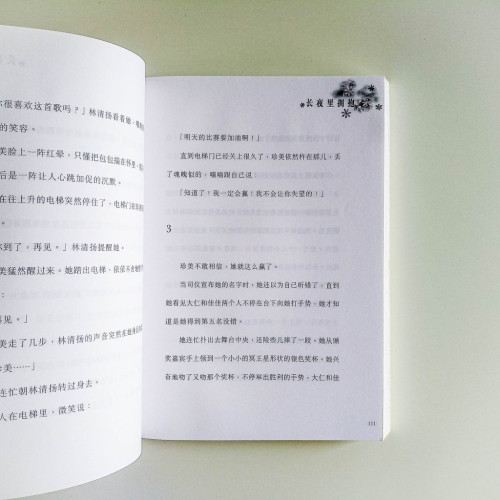 你很喜欢这首歌吗？」林清扬看着她，嘴角
的笑容。
美脸上一阵红晕，只懂把包包揣在怀里，
后是一阵让人心跳加促的沉默。
在往上升的电梯突然停住了，电梯门
你到了，再见。」林清扬提醒她。
美猛然醒过来。她踏出电梯，依依不舍
：
再见。」
美走了几步，林清扬的声音突然在她身后
珍美……」
连忙朝林清扬转过身去。
人在电梯里，微笑说：
长夜里拥抱
「明天的比赛要加油啊！」
直到电梯门已经关上很久了，珍美依然杵在那儿，丢
了魂魄似的，喃喃跟自己说：
「知道了！我一定会赢！我不会让你失望的！」
3
珍美不敢相信，她就这么赢了。
当司仪宣布她的名字时，她还以为自己听错了。直到
她看见大仁和佳佳两个人不停在台下向她打手势，她才知
道是她得到第五名没错。
她连忙扑出去舞台中央，还险些儿摔了一跤。她从颁
奖嘉宾手上领到一个小小的冥王星形状的银色奖杯。她兴
奋地吻了又吻那个奖杯，不停举出胜利的手势。大仁和佳
111